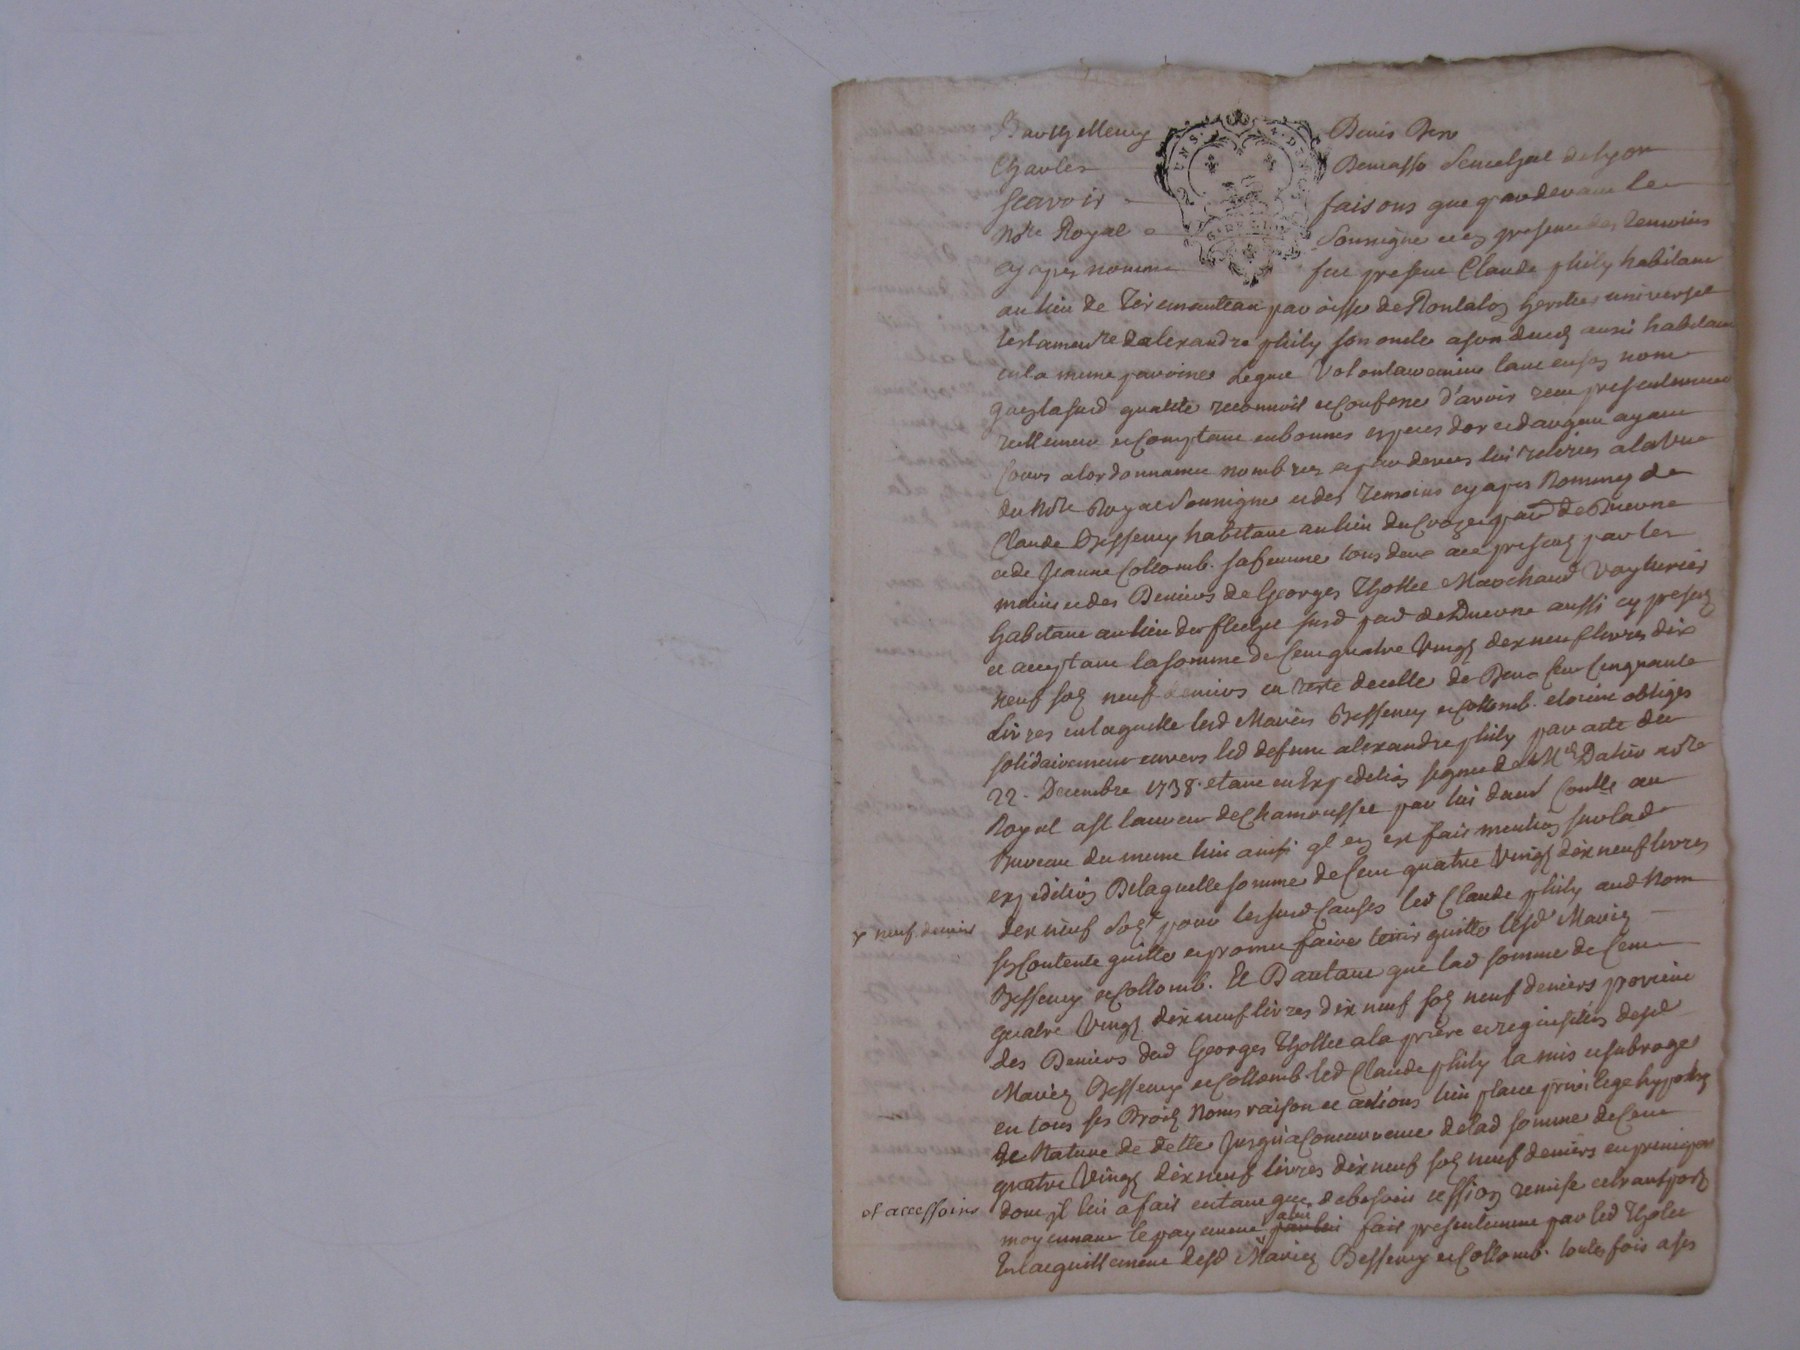 Barthelemy Denis Dero
Charles Demasso Senechal de Lyon
Scavoir faisons que pardevant le
Nore Royal Soussigné et en presence des temoins
cy apres nommé fut present Claude phily habitant
au lieu de paroisse de Rontalon heritier universel
testamentre dalexandre phily son oncle a son deces aussi habitant
en la meme paroisse Lequel Volontairement tant en son nom
qu'en lasusd qualité reconnoit et confesse d'avoir reçu presentement
reellement et comptant en bonnes especes dor et dargent ayant
Cours a lordonnance nombrées et par devers lui retirées a la vue
du Nore Royal Soussigné et des temoins cy apres Nommez de
Claude Bessenay habitant au lieu du Crozet parr de Duerne
et de Jeanne Collomb sa femme tous deux presens par les
mains et des Deniers de Georges Thollet Marchand Voyturier
habitant au lieu des susd parr de Duerne aussi cy present
et acceptant la somme de Cent quatre Vingt dix neuf livres dix
neuf sols neuf deniers en reste de celle de Deux Cent Cinquante
Livres en laquelle lesd Mariés Bessenay et Collomb etoient obligés
solidairement envers led defunt alexandre phily par acte du
22. Decembre 1738. etant en Expedition signée de Me Datin nore
Royal Chamousset par lui duem Conllé au
Bureau du meme lieu ainsi ql en est fait mention sur lad
expedition De laquelle somme de Cent quatre Vingt dix neuf livres
x neuf deniers dix neuf Sols pour les susd Causes led Claude phily aud Nom
se Contente quitte et promet faire tenir quitte lesd Mariez
Bessenay et Collomb. Et Dautant que lad somme de Cent
quatre Vingt dix neuf livres dix neuf sols neuf deniers provient
des Deniers dud Georges Thollet a la priere et requisition desd
Mariez Bessenay et Collomb led Claude phily la mis et subrogé
en tous ses Droits Noms raison et actions lieu place privilege hypoteq
et Nature de dette Jusqu'a Concurrence de lad somme de Cent
quatre Vingt dix neuf livres dix neuf sols neuf deniers en principal
et accessoires dont il lui a fait entant que de besoin cession remise et transport
moyennant le payement a lui par lui fait presentement par led Thollet
En lacquittement desd Mariez Bessenay et Collomb. toutes fois a ses